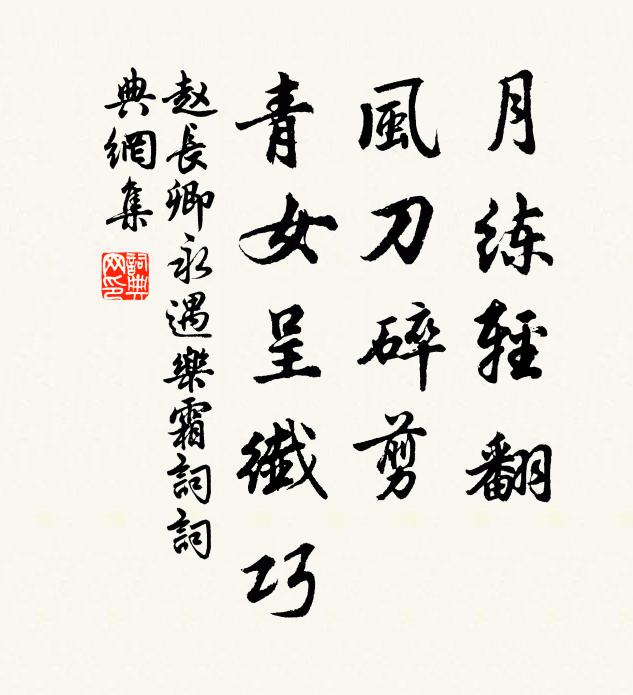 月练輕翻
風刀碎剪
青女呈纖巧
赵長卿永遇樂霜詞詞
典網集
詞典网印